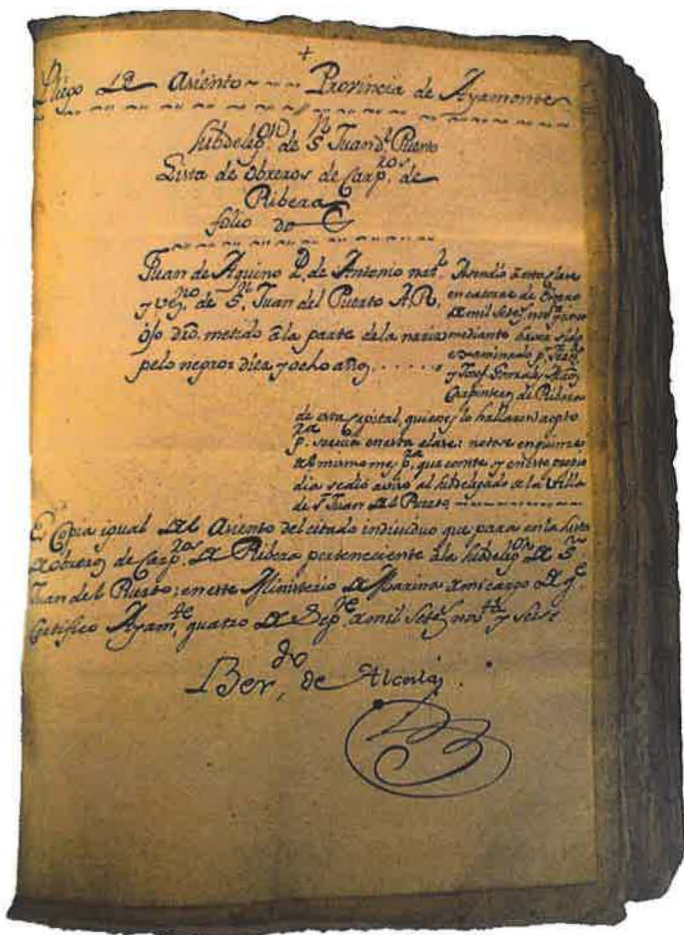 +
Pliego 1º Asiento Provincia de Ayamonte
Subdelegⁿ de Sⁿ Juan dl Puerto
Lista de obreros de Carpʳᵒˢ de
Ribera
folio do
Juan de Aquino D. de Antonio natˡ
y veqⁿᵒ de Sⁿ Juan del Puerto A. R.
ojo metido a la parte de la nariz
pelo negro: diez y ocho años
Asendio a esta clase
en catorce de Enero
de mil Seteˢ novᵗᵃ y
mediante haver sido
examinado p.
y Josef Gonzalez
Carpinteros de Ribera
de esta Capital, quienes lo hallaron apto
pᵃ servir en esta clase: notose en quince
del mismo mes pᵃ que conste y en este
dia se dió aviso al Subdelegado de la Villa
de Sⁿ Juan del Puerto
Es Copia igual del Asiento del citado individuo que para en la lista
de obreros de Carpʳᵒˢ de Ribera perteneciente a la Subdelegⁿ de Sⁿ
Juan del Puerto; en este Ministerio de Marina de mi cargo de qᵉ
Certifico Ayamᵗᵉ quatro de Sepᵉ de mil Seteˢ novᵗᵃ y seis
Berᵈᵒ de Alcalá